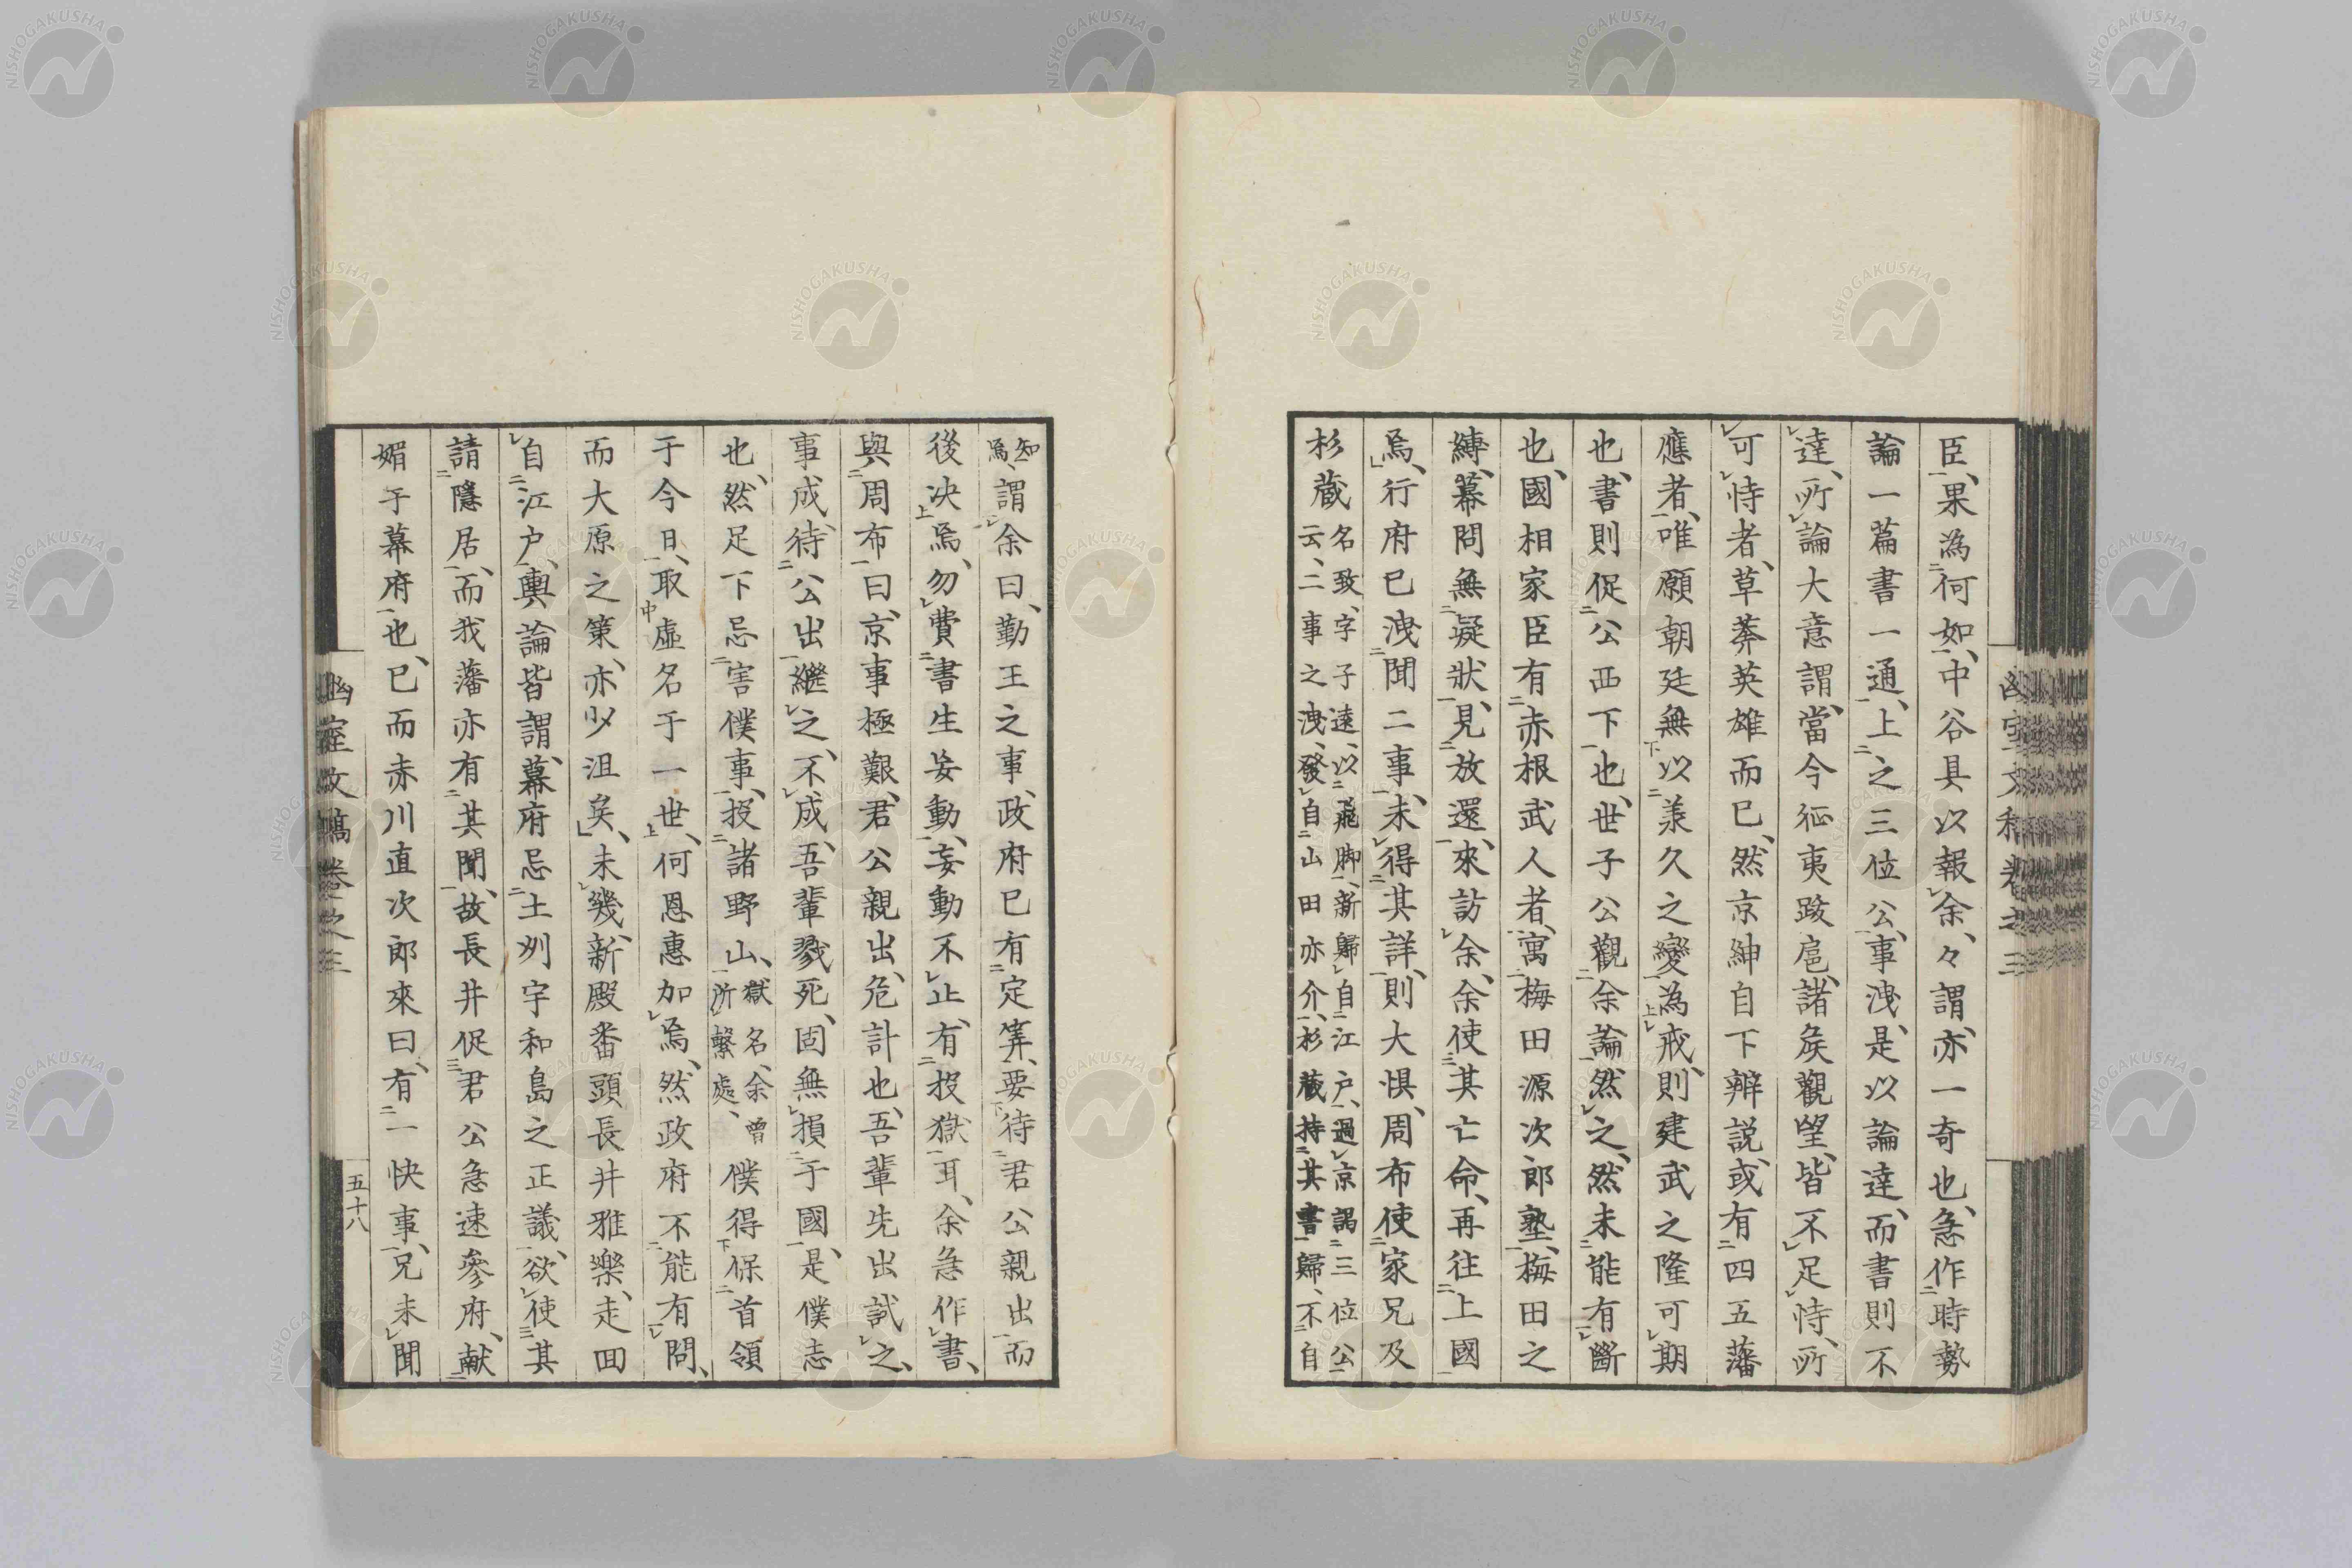 臣、果為何如、中谷具以報余、々謂、亦一奇也、急作時勢
論一篇書一通、上之三位公、事洩、是以論達、而書則不
達、所論大意謂、當今征夷跋扈、諸矦觀望、皆不足恃、所
可恃者、草莽英雄而已、然京紳自下辨説、或有四五藩
應者、唯願朝廷無以羕久之變為戒、則建武之隆可期
也、書則促公西下也、世子公觀余論然之、然未能有斷
也、國相家臣有赤根武人者、寓梅田源次郎塾、梅田之
縛、幕問無疑狀、見放還、來訪余、余使其亡命、再往上國
焉、行府已洩聞二事、未得其詳、則大惧、周布使家兄及
杉蔵名致、字子遠、以飛脚、新歸自江戸、過京謁三位公
云、二事之洩、發自山田亦介、杉蔵持其書歸、不自
知
焉、謂余曰、勤王之事、政府已有定筭、要待君公親出而
後决焉、勿費書生妄動、妄動不止、有投獄耳、余急作書、
與周布曰、京事極艱、君公親出、危計也、吾輩先出試之、
事成、待公出繼之、不成、吾輩戮死、固無損于國、是僕志
也、然足下忌害僕事、投諸野山、獄名、余曾
所繫處、僕得保首領
于今日、取虛名于一世、何恩惠加焉、然政府不能有問、
而大原之策、亦少沮矣、未幾、新殿番頭長井雅樂、走回
自江戸、輿論皆謂、幕府忌土州宇和島之正議、欲使其
請隱居、而我藩亦有其聞、故長井促君公急速參府、献
媚于幕府也、已而赤川直次郎來曰、有一快事、兄未聞
幽室文稿卷之三
五十八